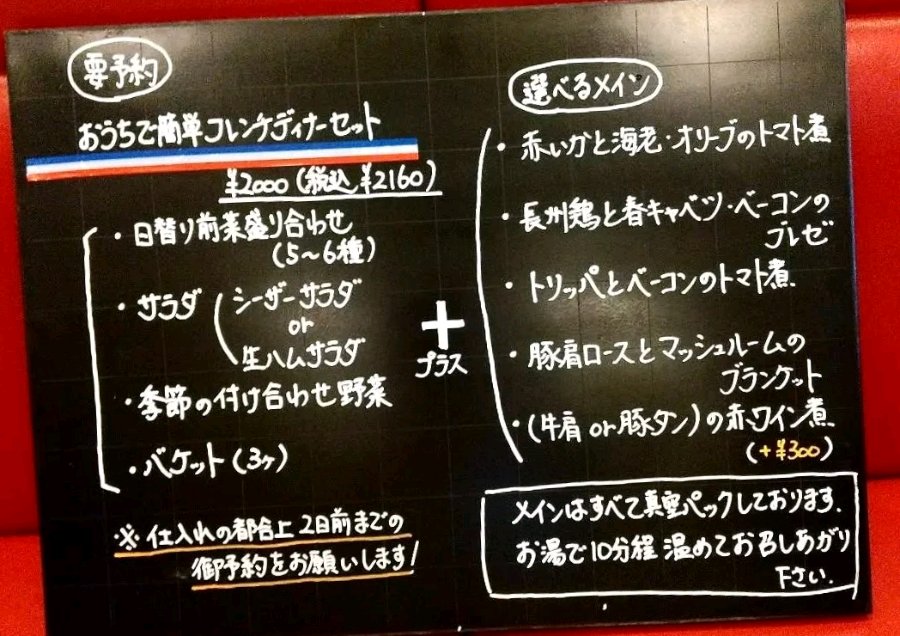 要予約
おうちで簡単フレンチディナーセット
¥2000(税込¥2160)
・日替り前菜盛り合わせ
(5～6種)
・サラダ
シーザーサラダ
or
生ハムサラダ
・季節の付け合わせ野菜
・バケット(3ヶ)
※仕入れの都合上2日前までの
御予約をお願いします!
+
プラス
選べるメイン
・赤いかと海老・オリーブのトマト煮
・長州鶏と春キャベツ・ベーコンの
ブレゼ
・トリッパとベーコンのトマト煮
・豚肩ロースとマッシュルームの
ブランケット
・(牛肩or豚タン)の赤ワイン煮
(+¥300)
メインはすべて真空パックしております.
お湯で10分程温めてお召しあがり
下さい.